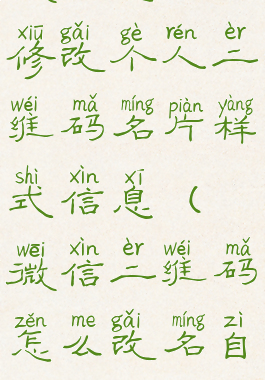 xiū gǎi gè rén èr
修改个人二
wéi mǎ míng piàn yàng
维码名片样
shì xìn xī
式信息（
wēi xìn èr wéi mǎ
微信二维码
zěn me gǎi míng zì
怎么改名自